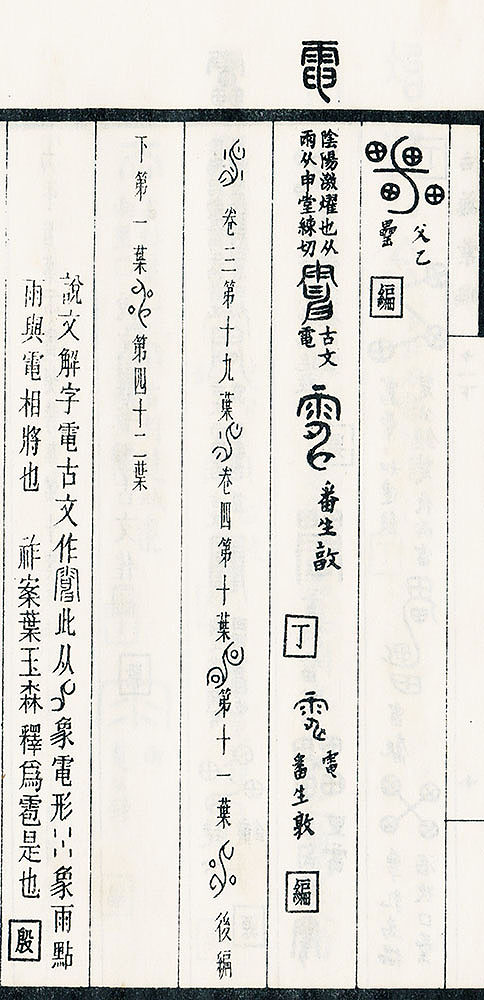 父乙
罍
編
電
陰陽激燿也从
雨从申堂練切
古文
電
番生敦
丁
電
番生敦
編
卷三第十九葉 卷四第十葉 第十一葉 後編
下第一葉 第四十二葉
說文解字電古文作 此从 象電形 象雨點
雨與電相將也 祚案葉玉森釋爲雹是也
殷